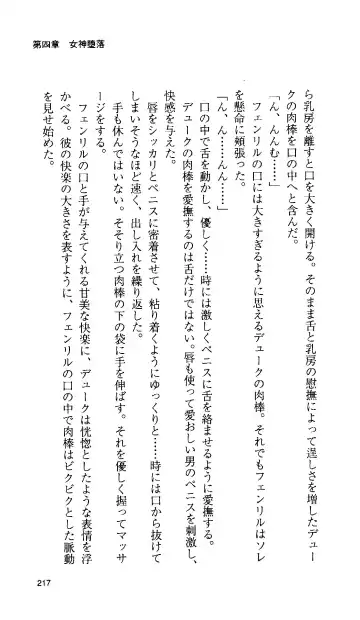 第四章　女神堕落
ら乳房を離すと口を大きく開ける。そのまま舌と乳房の慰撫によって逞しさを増したデュー
クの肉棒を口の中へと含んだ。
「ん、んんむ……」
フェンリルの口には大きすぎるように思えるデュークの肉棒。それでもフェンリルはソレ
を懸命に頬張った。
「ん、んん……んん……」
口の中で舌を動かし、優しく……時には激しくペニスに舌を絡ませるように愛撫する。
デュークの肉棒を愛撫するのは舌だけではない。唇も使って愛おしい男のペニスを刺激し、
快感を与えた。
唇をシッカリとペニスに密着させて、粘り着くようにゆっくりと……時には口から抜けて
しまいそうなほど速く、出し入れを繰り返した。
手も休んではいない。そそり立つ肉棒の下の袋に手を伸ばす。それを優しく握ってマッサ
ージをする。
フェンリルの口と手が与えてくれる甘美な快楽に、デュークは恍惚としたような表情を浮
かべる。彼の快楽の大きさを表すように、フェンリルの口の中で肉棒はビクビクとした脈動
を見せ始めた。
217